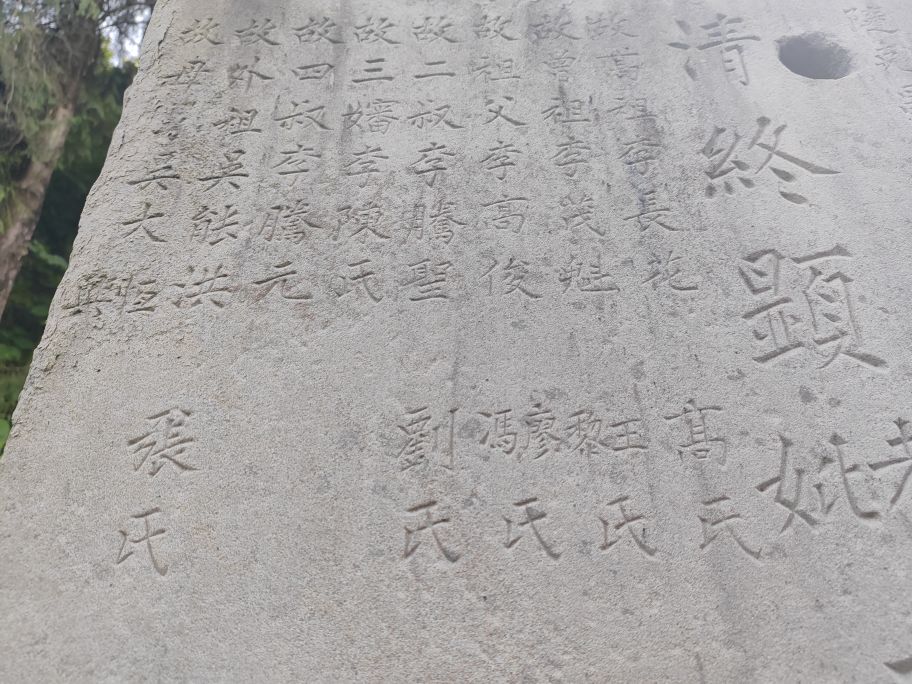 清終顯妣
故高祖李長花高氏
故曾祖李茂魁王黎氏
故祖父李高俊廖馮氏
故二叔李騰聖劉氏
故三嬸李陳氏
故四叔李騰元
故外祖吳能洪張氏
故母兵大恒興